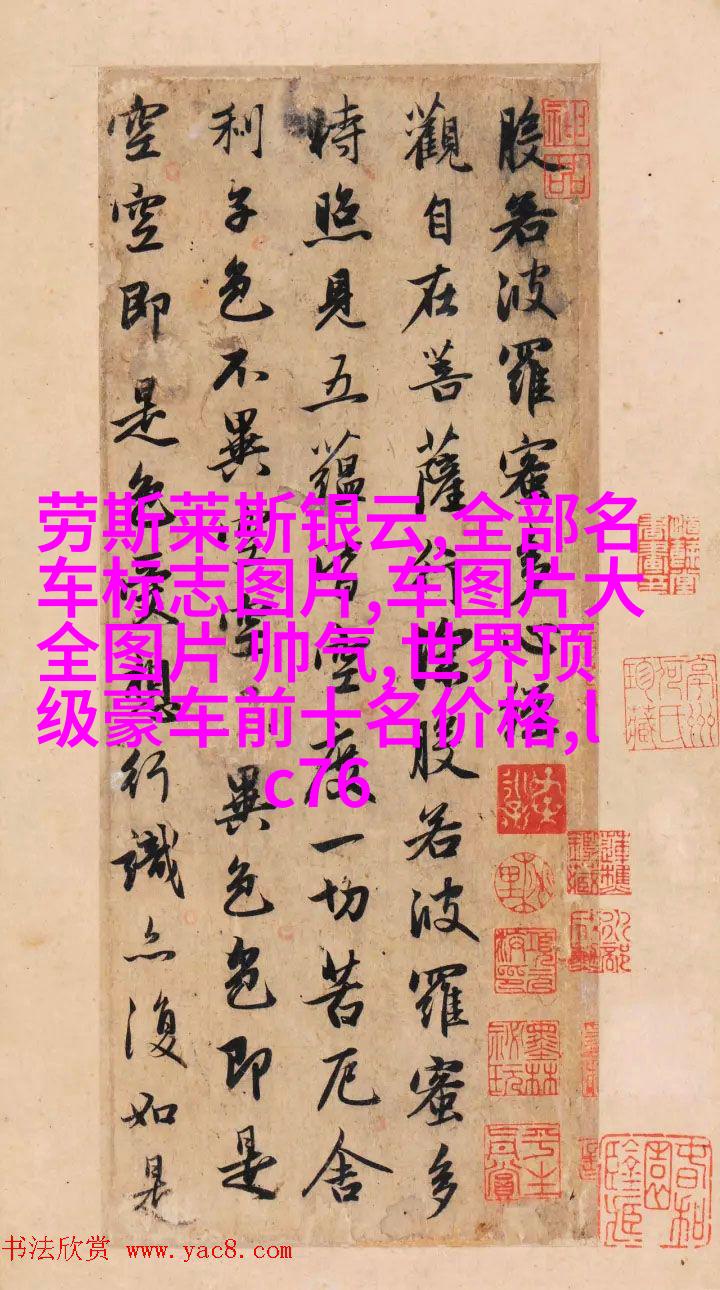 般若波羅蜜多心經
觀自在菩薩行深般若波羅蜜多
時照見五蘊皆空度一切苦厄舍
利子色不異空空不異色色即是
空空即是色受想行識亦復如是
劳斯莱斯银云,全部名
车标志图片,车图片大
全图片 帅气,世界顶
级豪车前十名价格,l
c76
神品
墨林
祕玩
书法欣赏 www.yac8.com